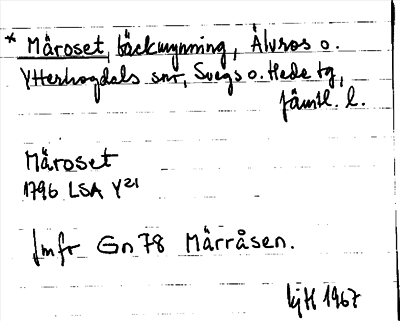 * Märoset, bäckmynning, Älvros o.
Ytterhogdals snr, Svegs o. Hede tg,
Jämtl. l.
Märoset
1796 LSA Y21
Jmfr Gn 78 Märråsen.
1967